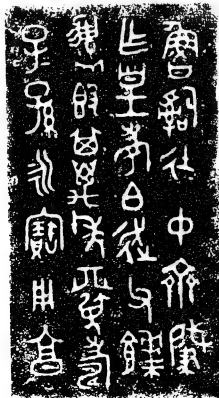 魯司徒中齊肇
乍皇考白走父饙
盨𣪘其萬年眉壽
子孫永寶用享